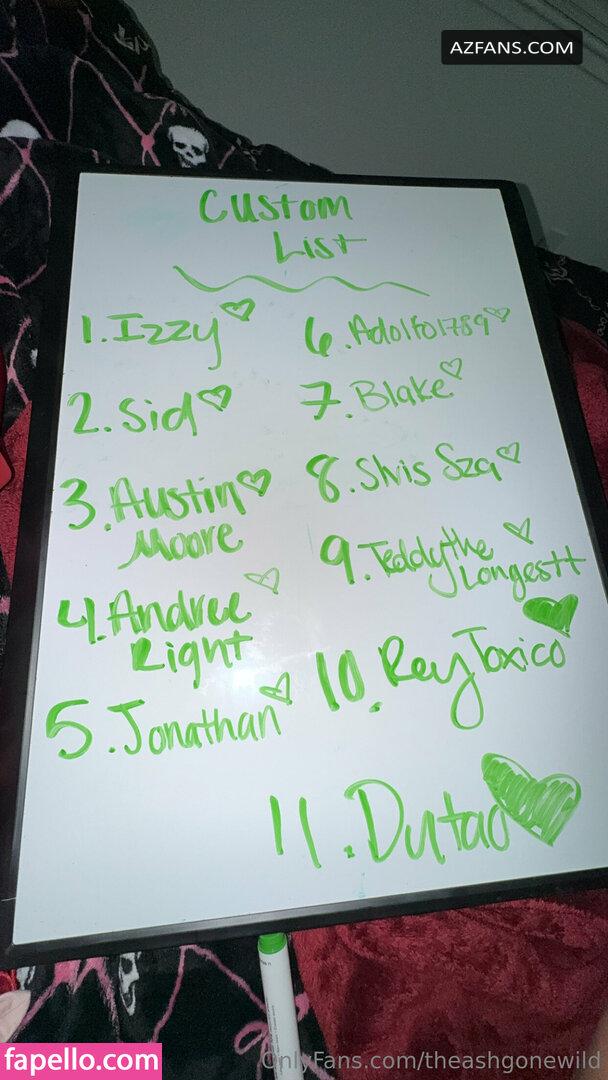 AZFANS.COM
Custom
List
1. Izzy
2. Sid
3. Austin
Moore
4. Andree
Right
5. Jonathan
6. Adolfo1789
7. Blake
8. Slvis Sza
9. Teddythe
Longestt
10. Rey Toxico
11. Dutao
fapello.com
OnlyFans.com/theashgonewild